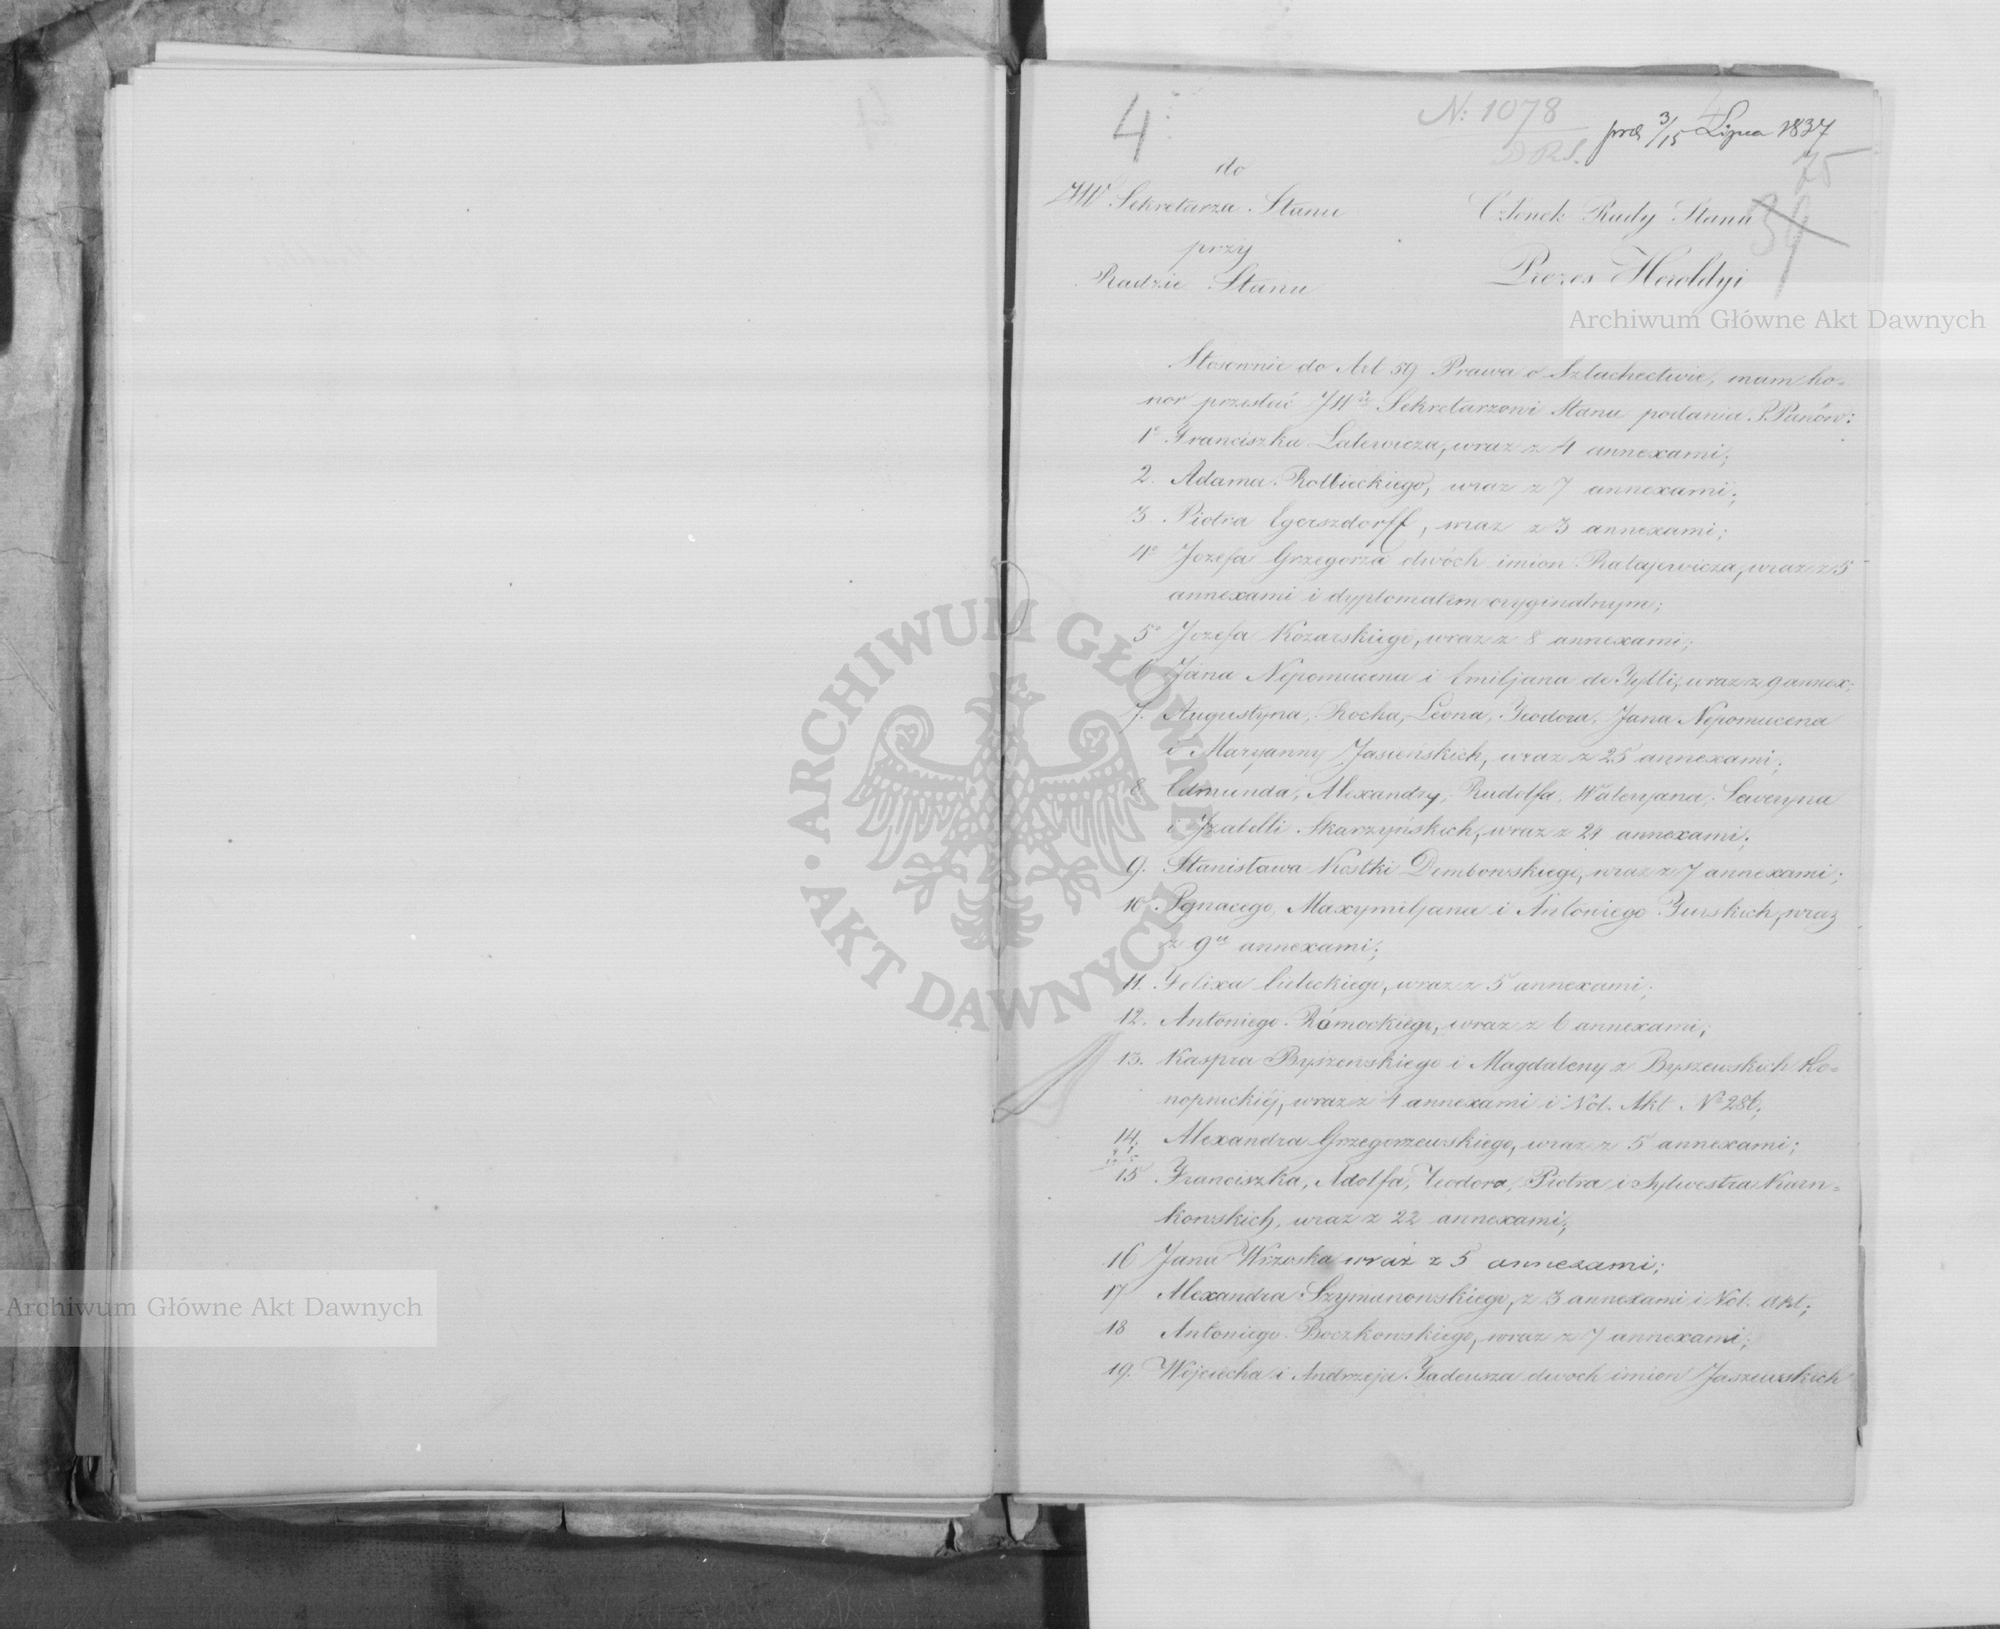 4
N: 1078
D R S.
prod 3/15 Lipca 1837
75
do
JW Sekretarza Stanu
przy
Radzie Stanu
Członek Rady Stanu
Prezes Heroldyi
Stosownie do Art 59 Prawa o Szlachectwie, mam ho-
nor przesłać JW Sekretarzowi Stanu podania P. Panów:
1° Franciszka Latewicza, wraz z 4 annexami;
2. Adama Kolbieckiego, wraz z 7 annexami;
3. Piotra Egerszdorff, wraz z 3 annexami;
4° Jozefa Grzegorza dwóch imion Ratajewicza, wraz z 5
annexami i dyplomatem oryginalnym;
5° Jozefa Kozarskiego, wraz z 8 annexami;
6 Jana Nepomucena i Emiljana de Tylli, wraz z 9 annex;
7. Augustyna, Rocha, Leona, Teodora, Jana Nepomucena
i Maryanny Jasieńskich, wraz z 25 annexami;
8 Edmunda, Alexandry, Rudolfa, Waleryana, Seweryna
i Izabelli Skarzyńskich, wraz z 21 annexami;
9. Stanisława Kostki Dembowskiego, wraz z 7 annexami;
10 Ignacego, Maxymiljana i Antoniego Turskich, wraz
z 9u annexami;
11. Felixa Cieleckiego, wraz z 5 annexami;
12. Antoniego Rómockiego, wraz z 6 annexami;
13. Kaspra Byszewskiego i Magdaleny z Byszewskich Ko-
nopnickiéj, wraz z 4 annexami i Vol. Akt N° 286;
14. Alexandra Grzegorzewskiego, wraz z 5 annexami;
15 Franciszka, Adolfa, Teodora, Piotra i Sylwestra Karn-
kowskich, wraz z 22 annexami;
16 Jana Wrzoska wraz z 5 annexami;
17 Alexandra Szymanowskiego, z 3 annexami i Vol. akt;
18 Antoniego Boczkowskiego, wraz z 7 annexami;
19. Wojciecha i Andrzeja Tadeusza dwoch imion Jaszewskich
Archiwum Główne Akt Dawnych
Archiwum Główne Akt Dawnych
ARCHIWUM GŁÓWNE AKT DAWNYCH